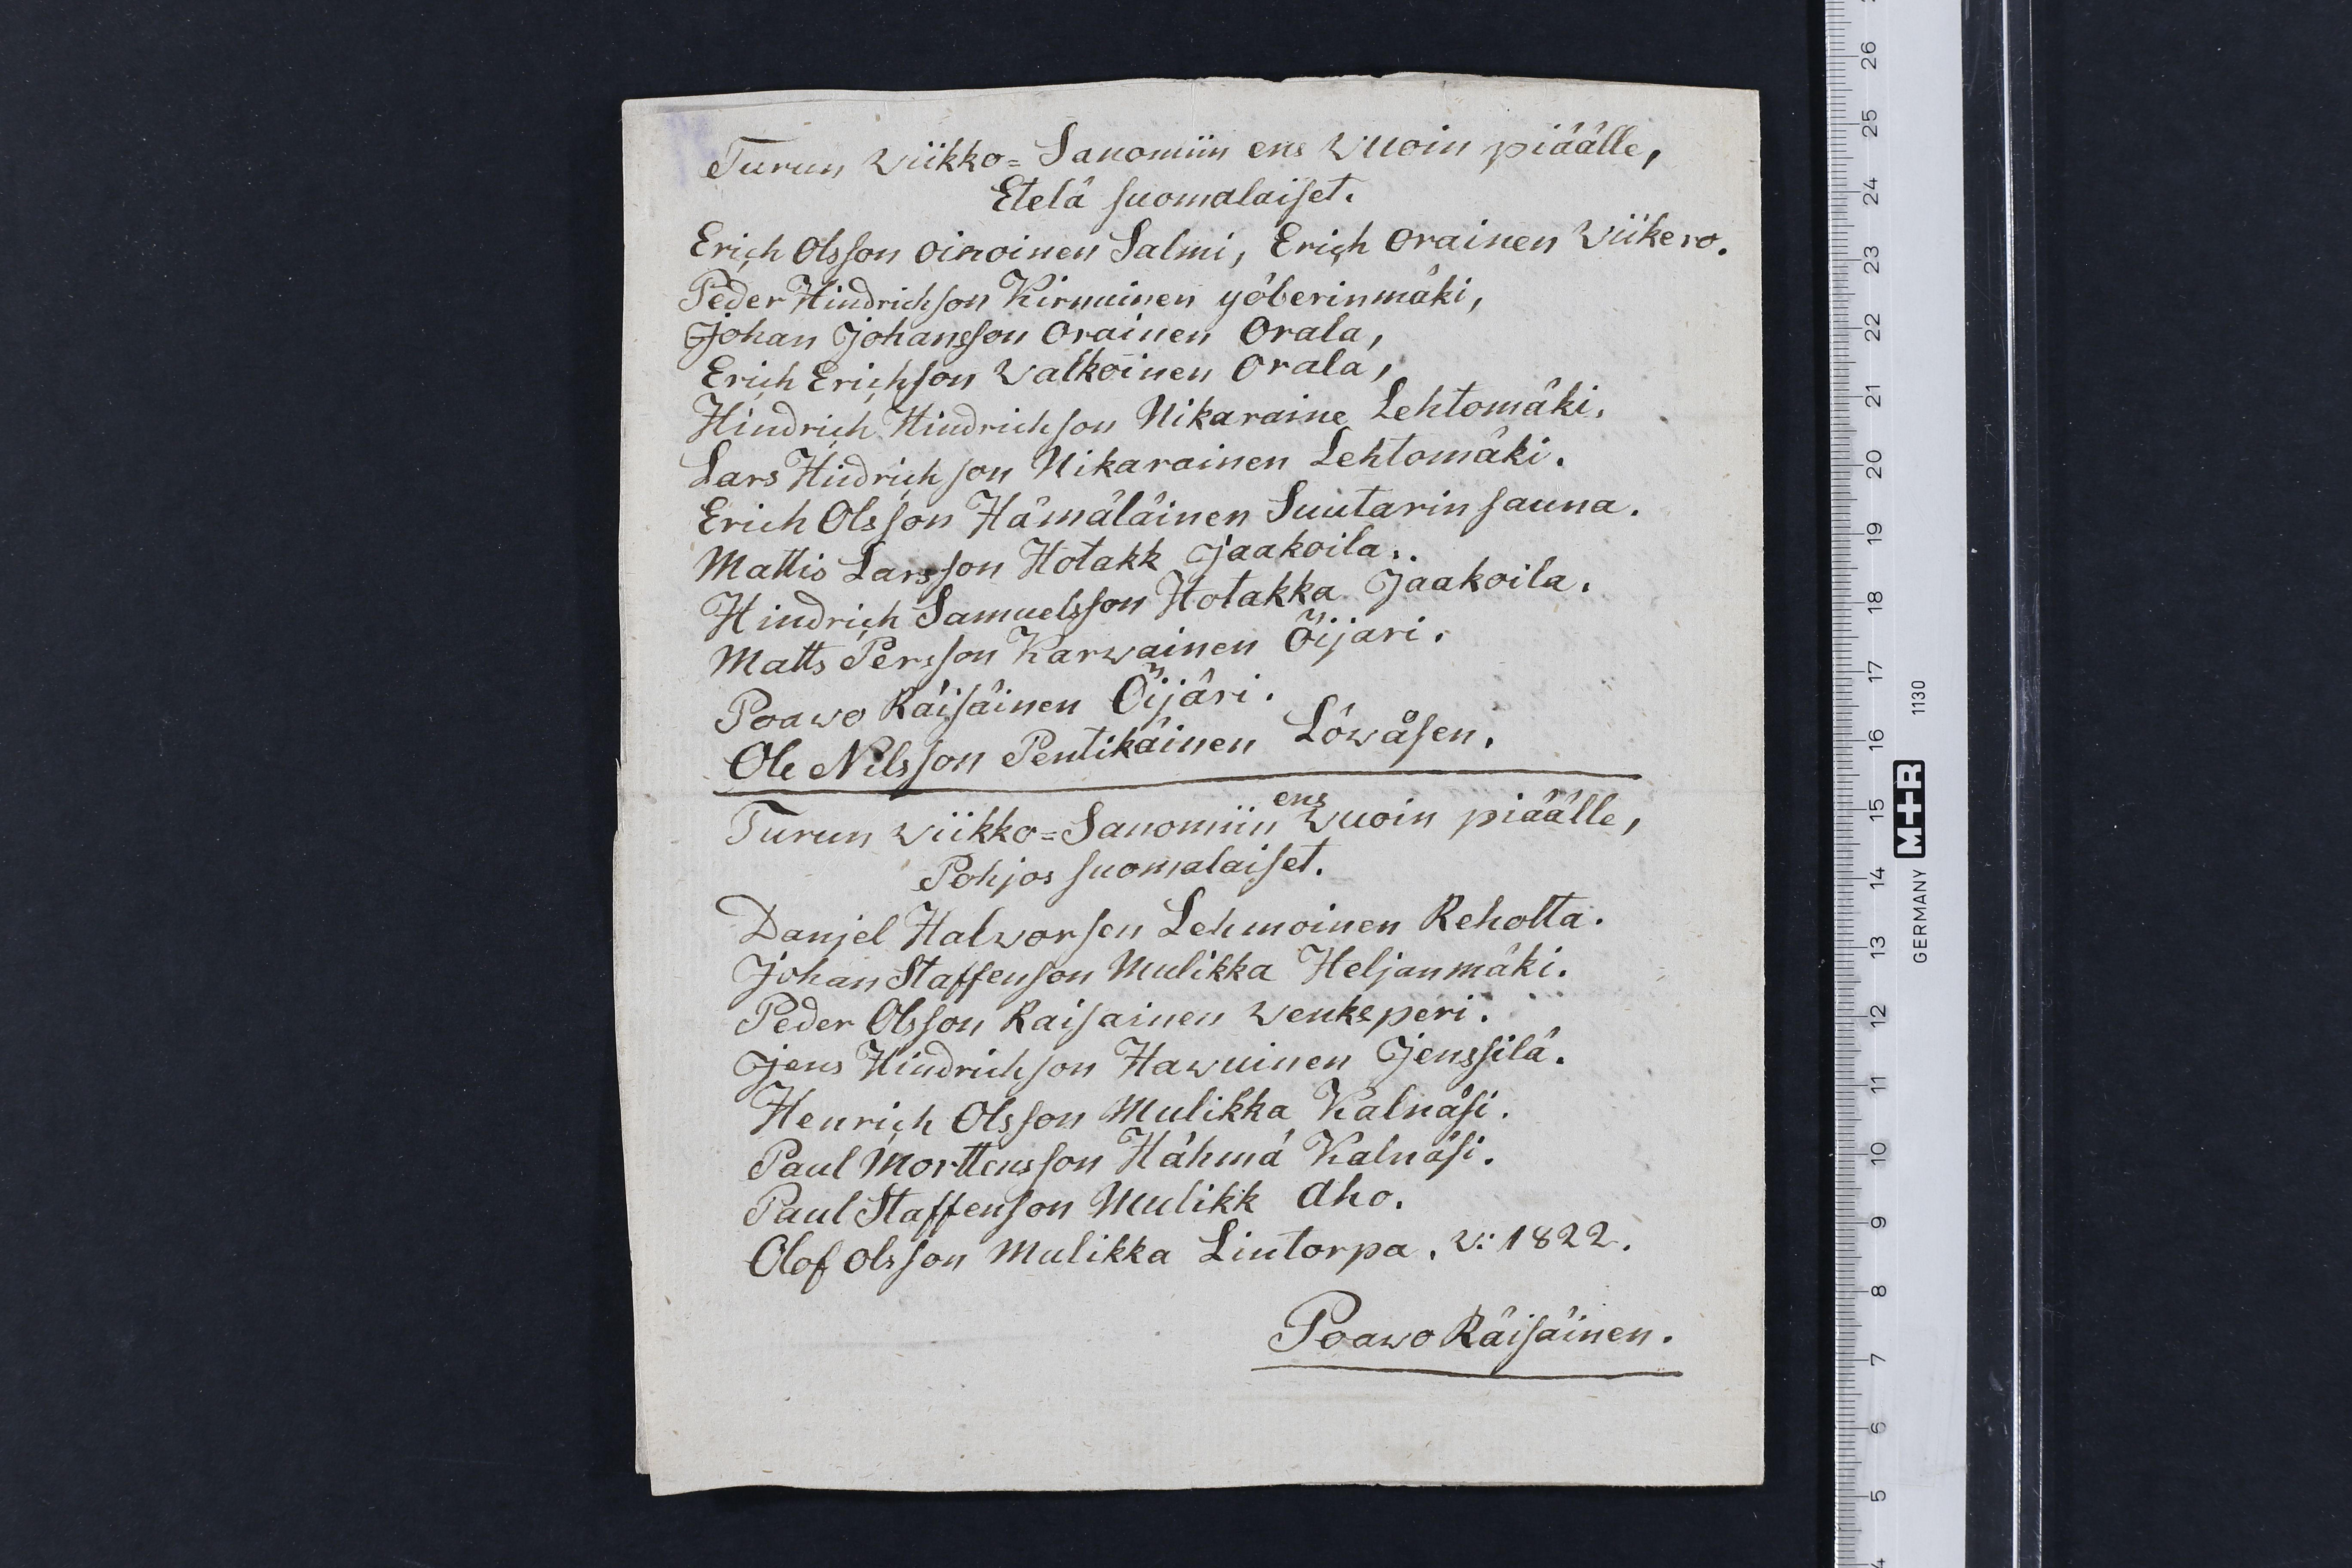 Turun Wiikko=Sanomiin ens Wuoin piäälle,
Etelä suomalaiset.
Erich Olsson Oinoinen Salmi, Erich Orainen Wiikero.
Peder Hindrichson Kirnuinen yöberinmäki,
Johan Johansson Orainen Orala,
Erich Erichson Walkoinen Orala,
Hindrich Hindrichson Nikaraine Lehtomäki.
Lars Hindrichson Nikarainen Lehtomäki.
Erich Olsson Hämäläinen Suutarin sauna.
Mattis Larsson Hotakk Jaakoila.
Hindrich Samuelsson Hotakka Jaakoila.
Matts Persson Karwainen Öijari.
Poawo Räisäinen Öijäri.
Ole Nilsson Pentikäinen Löwåsen.
Turun Wiikko=Sanomiin ens Wuoin piäälle,
Pohjos suomalaiset.
Danjel Halworsen Lehmoinen Rehotta.
Johan Staffenson Mulikka Heljanmäki.
Peder Olsson Raisainen Wenkeperi.
Jens Hindrichson Hawuinen Jenssilä.
Henrich Olsson Mulikka Kalnäsi.
Paul Morttensson Hähmä Kalnäsi.
Paul Staffenson Mulikk Aho.
Olof Olsson Mulikka Lintorpa. v: 1822.
Poawo Räisäinen.
26
25
24
23
22
21
20
19
18
17
16
15
14
13
12
11
10
9
8
7
6
5
4
GERMANY M+R 1130